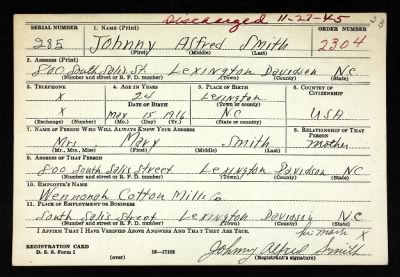 Discharged 11-27-45
SERIAL NUMBER 1. NAME (Print) ORDER NUMBER
285 Johnny Alfred Smith 2304
(First) (Middle) (Last)
2. ADDRESS (Print)
800 South Salis St. Lexington Davidson NC
(Number and street or R. F. D. number) (Town) (County) (State)
3. TELEPHONE 4. AGE IN YEARS 5. PLACE OF BIRTH 6. COUNTRY OF CITIZENSHIP
X 24 Lexington
DATE OF BIRTH (Town or county)
X May 15 1916 NC USA
(Exchange) (Number) (Mo.) (Day) (Yr.) (State or country)
7. NAME OF PERSON WHO WILL ALWAYS KNOW YOUR ADDRESS 8. RELATIONSHIP OF THAT PERSON
Mrs Mary Smith Mother
(Mr., Mrs., Miss) (First) (Middle) (Last)
9. ADDRESS OF THAT PERSON
800 South Salis Street Lexington Davidson NC
(Number and street or R. F. D. number) (Town) (County) (State)
10. EMPLOYER'S NAME
Wennonah Cotton Mills Co
11. PLACE OF EMPLOYMENT OR BUSINESS
South Salis Street Lexington Davidson NC
(Number and street or R. F. D. number) (Town) (County) (State)
I AFFIRM THAT I HAVE VERIFIED ABOVE ANSWERS AND THAT THEY ARE TRUE.
his mark X
REGISTRATION CARD
D. S. S. Form 1 16—17105 Johnny Alfred Smith
(over) (Registrant's signature)